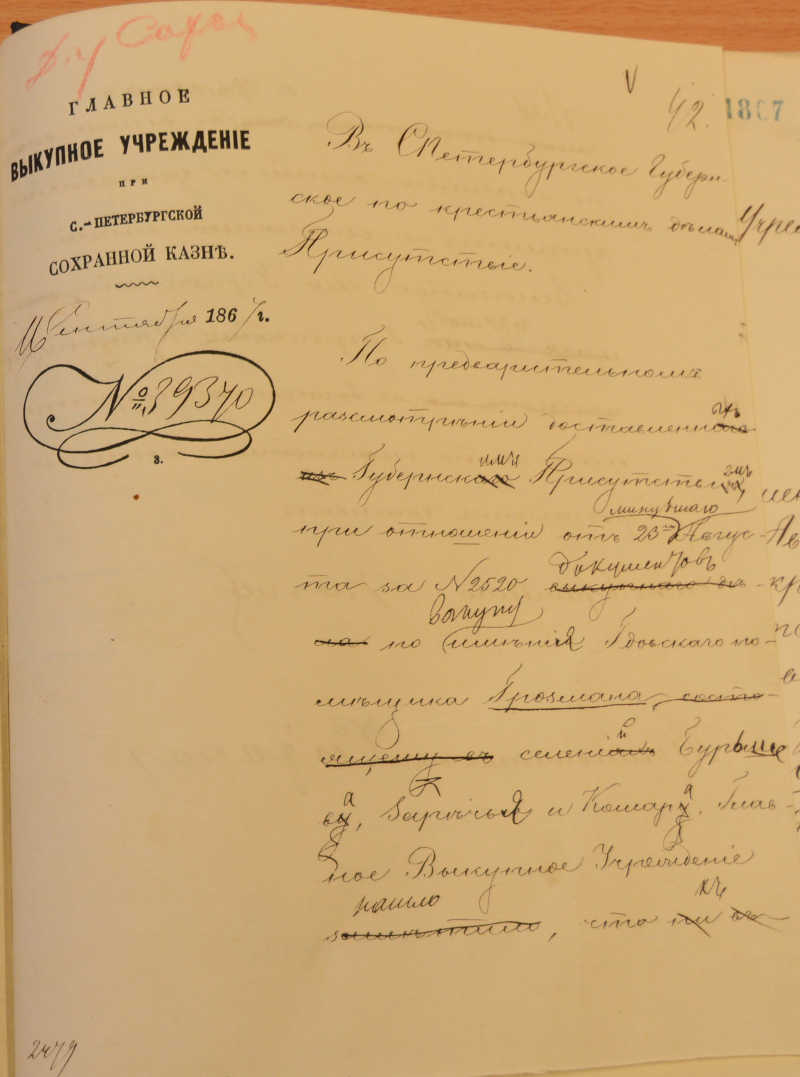 42.
1867
ГЛАВНОЕ
ВЫКУПНОЕ УЧРЕЖДЕНІЕ
ПРИ
С.-ПЕТЕРБУРГСКОЙ
СОХРАННОЙ КАЗНѢ.
Сентября 1867 г.
№ 39370
3.
Въ СПетербургское Губерн
ское по крестьянскимъ дѣламъ
Присутствіе.
По предварительному
разсмотрѣніи доставленныхъ
Губернскимъ Присутствіемъ,
при отношеніи отъ 23 минувшаго Авгус-
та за N 2520 документовъ
по выкупу имѣнія Гдовскаго по-
мѣщика Грозмана, состо-
ящему въ селеніи
Зарѣчья и Комара. Глав-
ное Выкупное Учрежденіе
нашло, что ни въ къ
2479